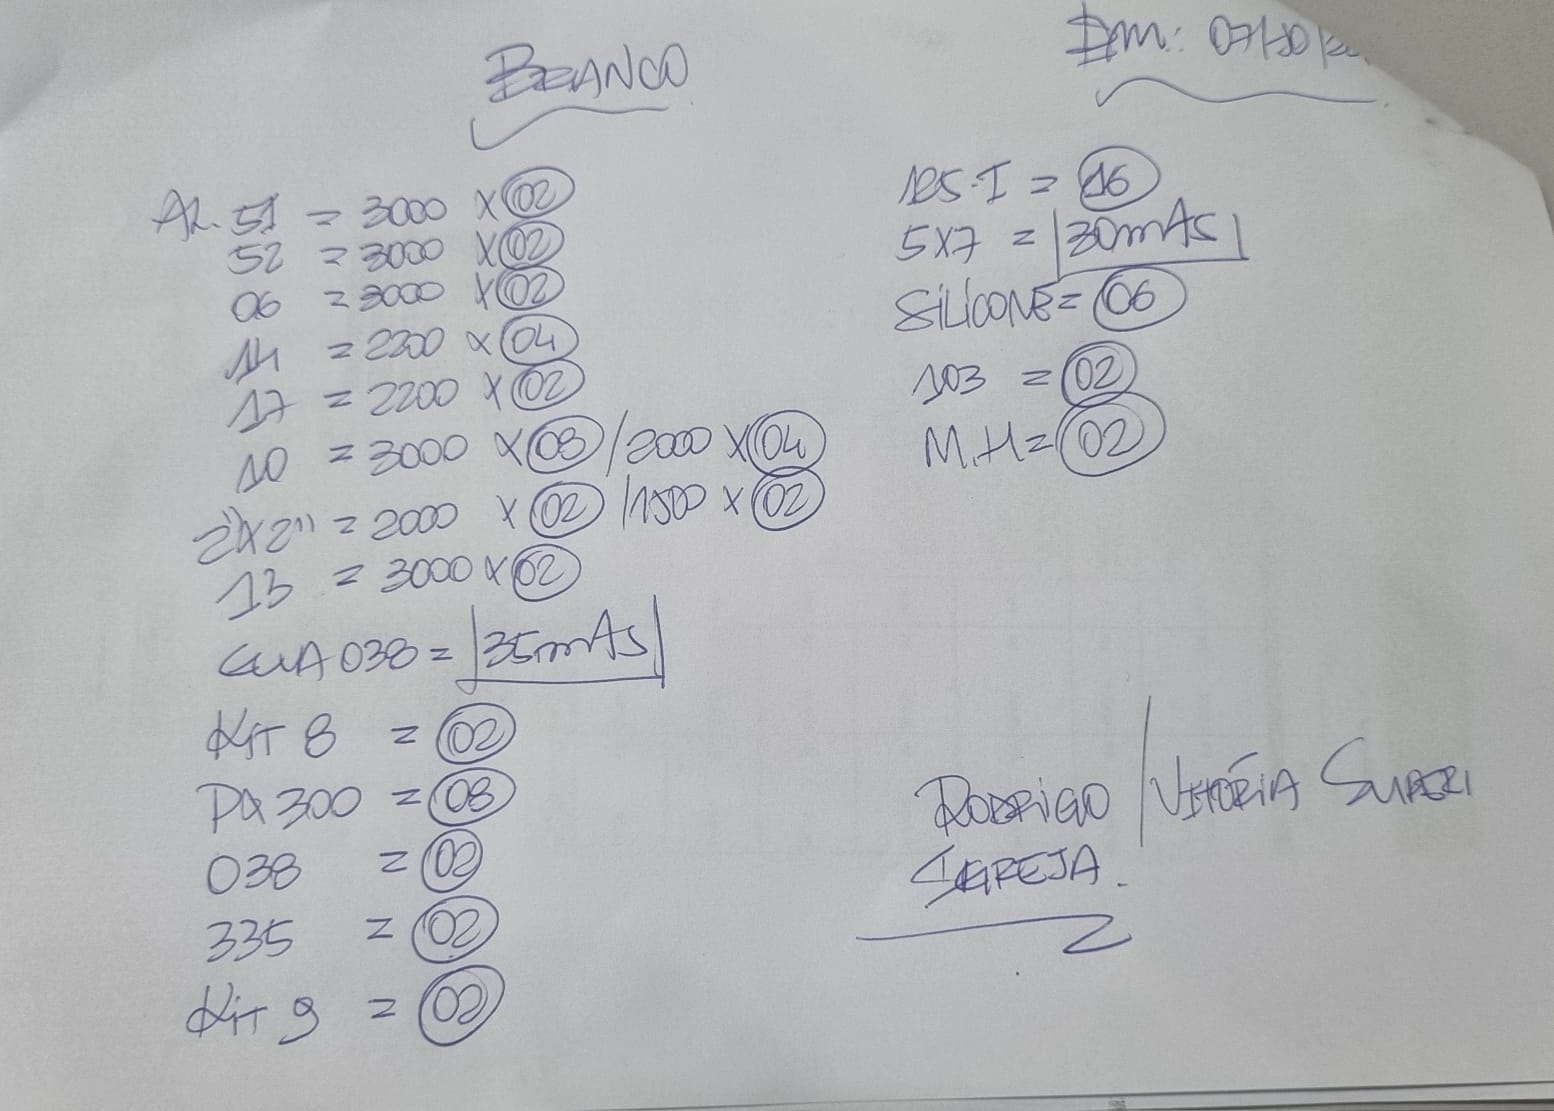 BRANCO
EM: 07/10/20
AL. 51 = 3000 X 02
52 = 3000 X 02
06 = 3000 X 02
14 = 2200 X 04
17 = 2200 X 02
10 = 3000 X 08 / 2000 X 04
2"X2" = 2000 X 02 / 1500 X 02
13 = 3000 X 02
GUA 038 = 35mAs
Kit 8 = 02
PQ 300 = 08
038 = 02
335 = 02
Kit 9 = 02
125.I = 16
5X7 = 30mAs
SILICONE = 06
103 = 02
M.H = 02
RODRIGO / VITÓRIA
IGREJA.